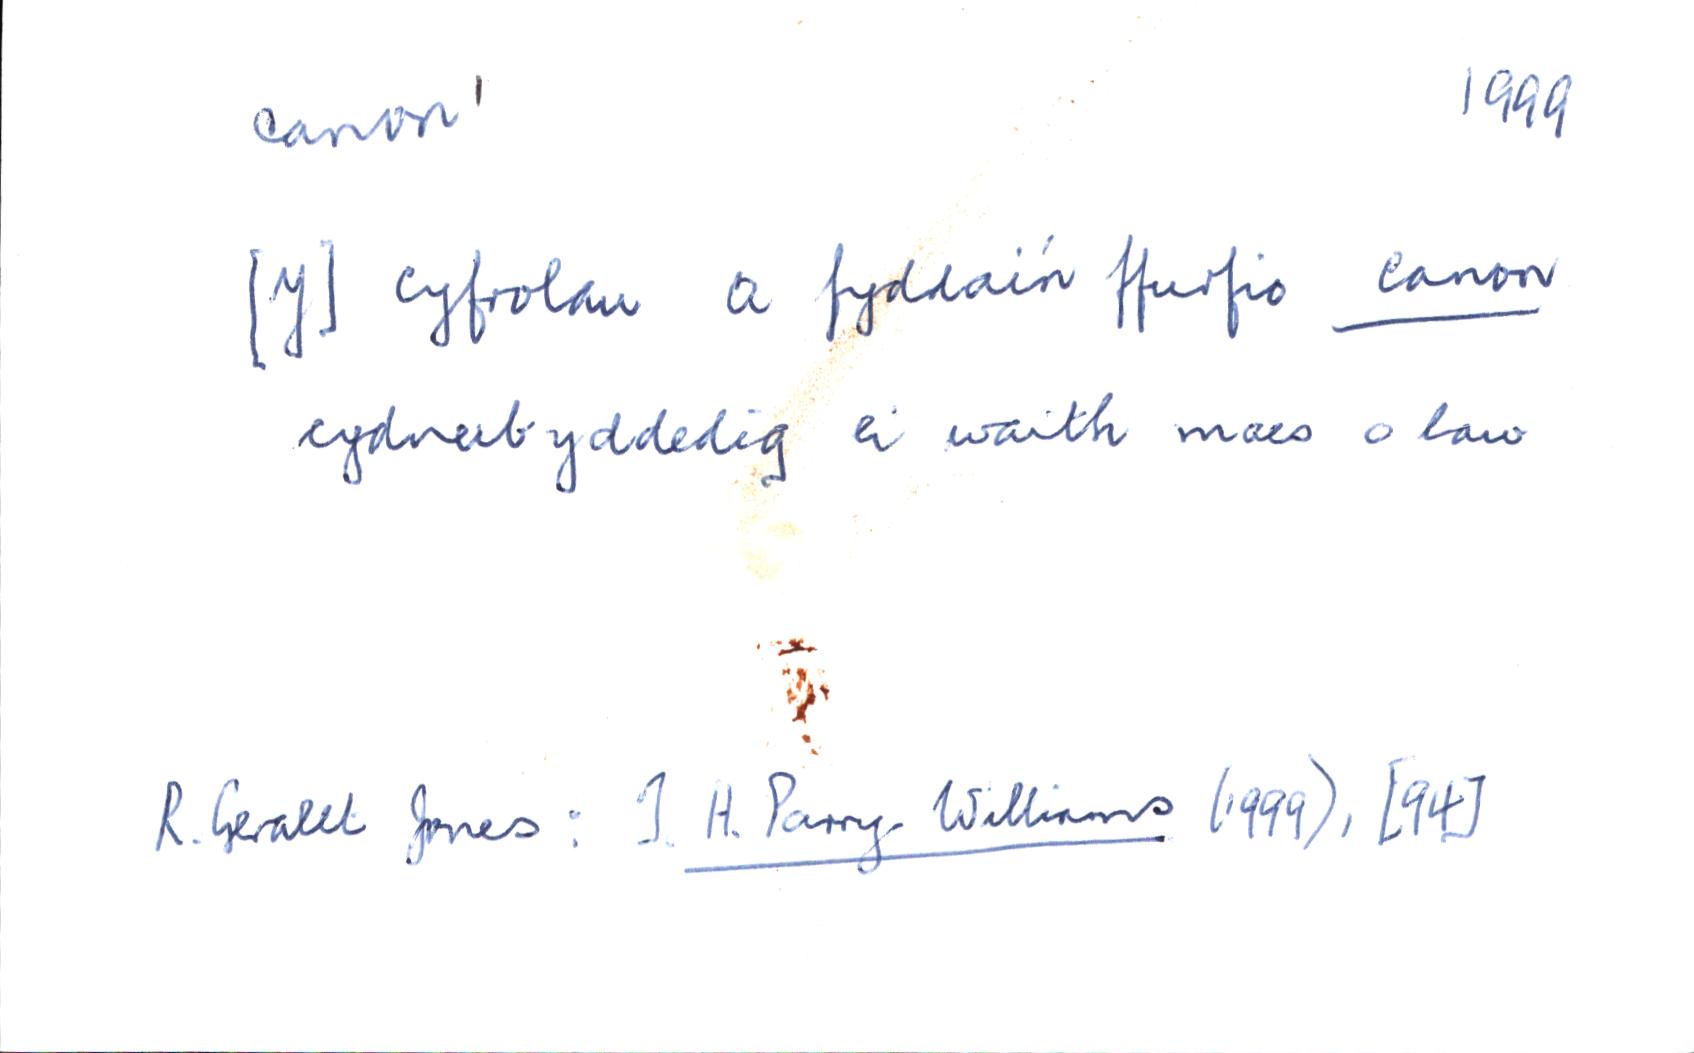 canon¹ 1999
[y] cyfrolau a fyddai'n ffurfio canon
cydnabyddedig ei waith maes o law
R. Gerallt Jones: T. H. Parry-Williams (1999), [94]